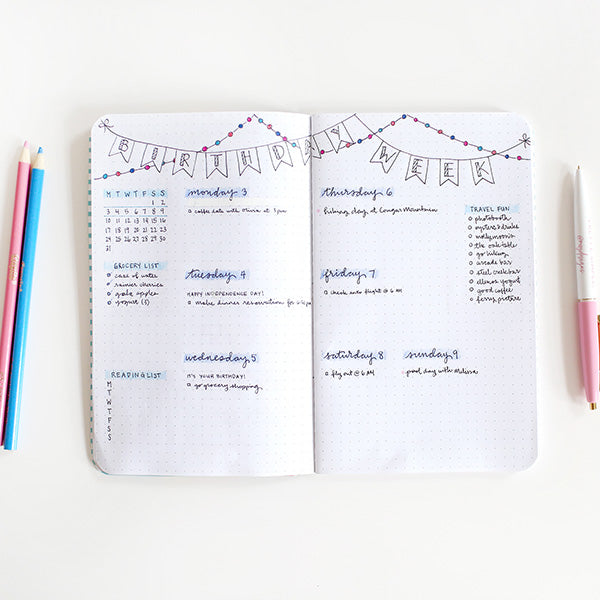 BIRTHDAY WEEK
M T W T F S S
1 2
3 4 5 6 7 8 9
10 11 12 13 14 15 16
17 18 19 20 21 22 23
24 25 26 27 28 29 30
31
GROCERY LIST
case of water
rainier cherries
gala apples
yogurt (5)
READING LIST
M
T
W
T
F
S
S
monday 3
coffee date with at 1pm
tuesday 4
HAPPY INDEPENDENCE DAY!
make dinner reservation for
wednesday 5
IT'S YOUR BIRTHDAY!
go grocery shopping
thursday 6
day at Cougar Mountain
friday 7
check into flight @ 6 AM
saturday 8
fly out @ 6 AM
sunday 9
pool day with Melissa
TRAVEL FUN
photobooth
oysters &
molly moon's
the oak table
go hiking
arcade bar
ellenos yogurt
good coffee
ferry picture